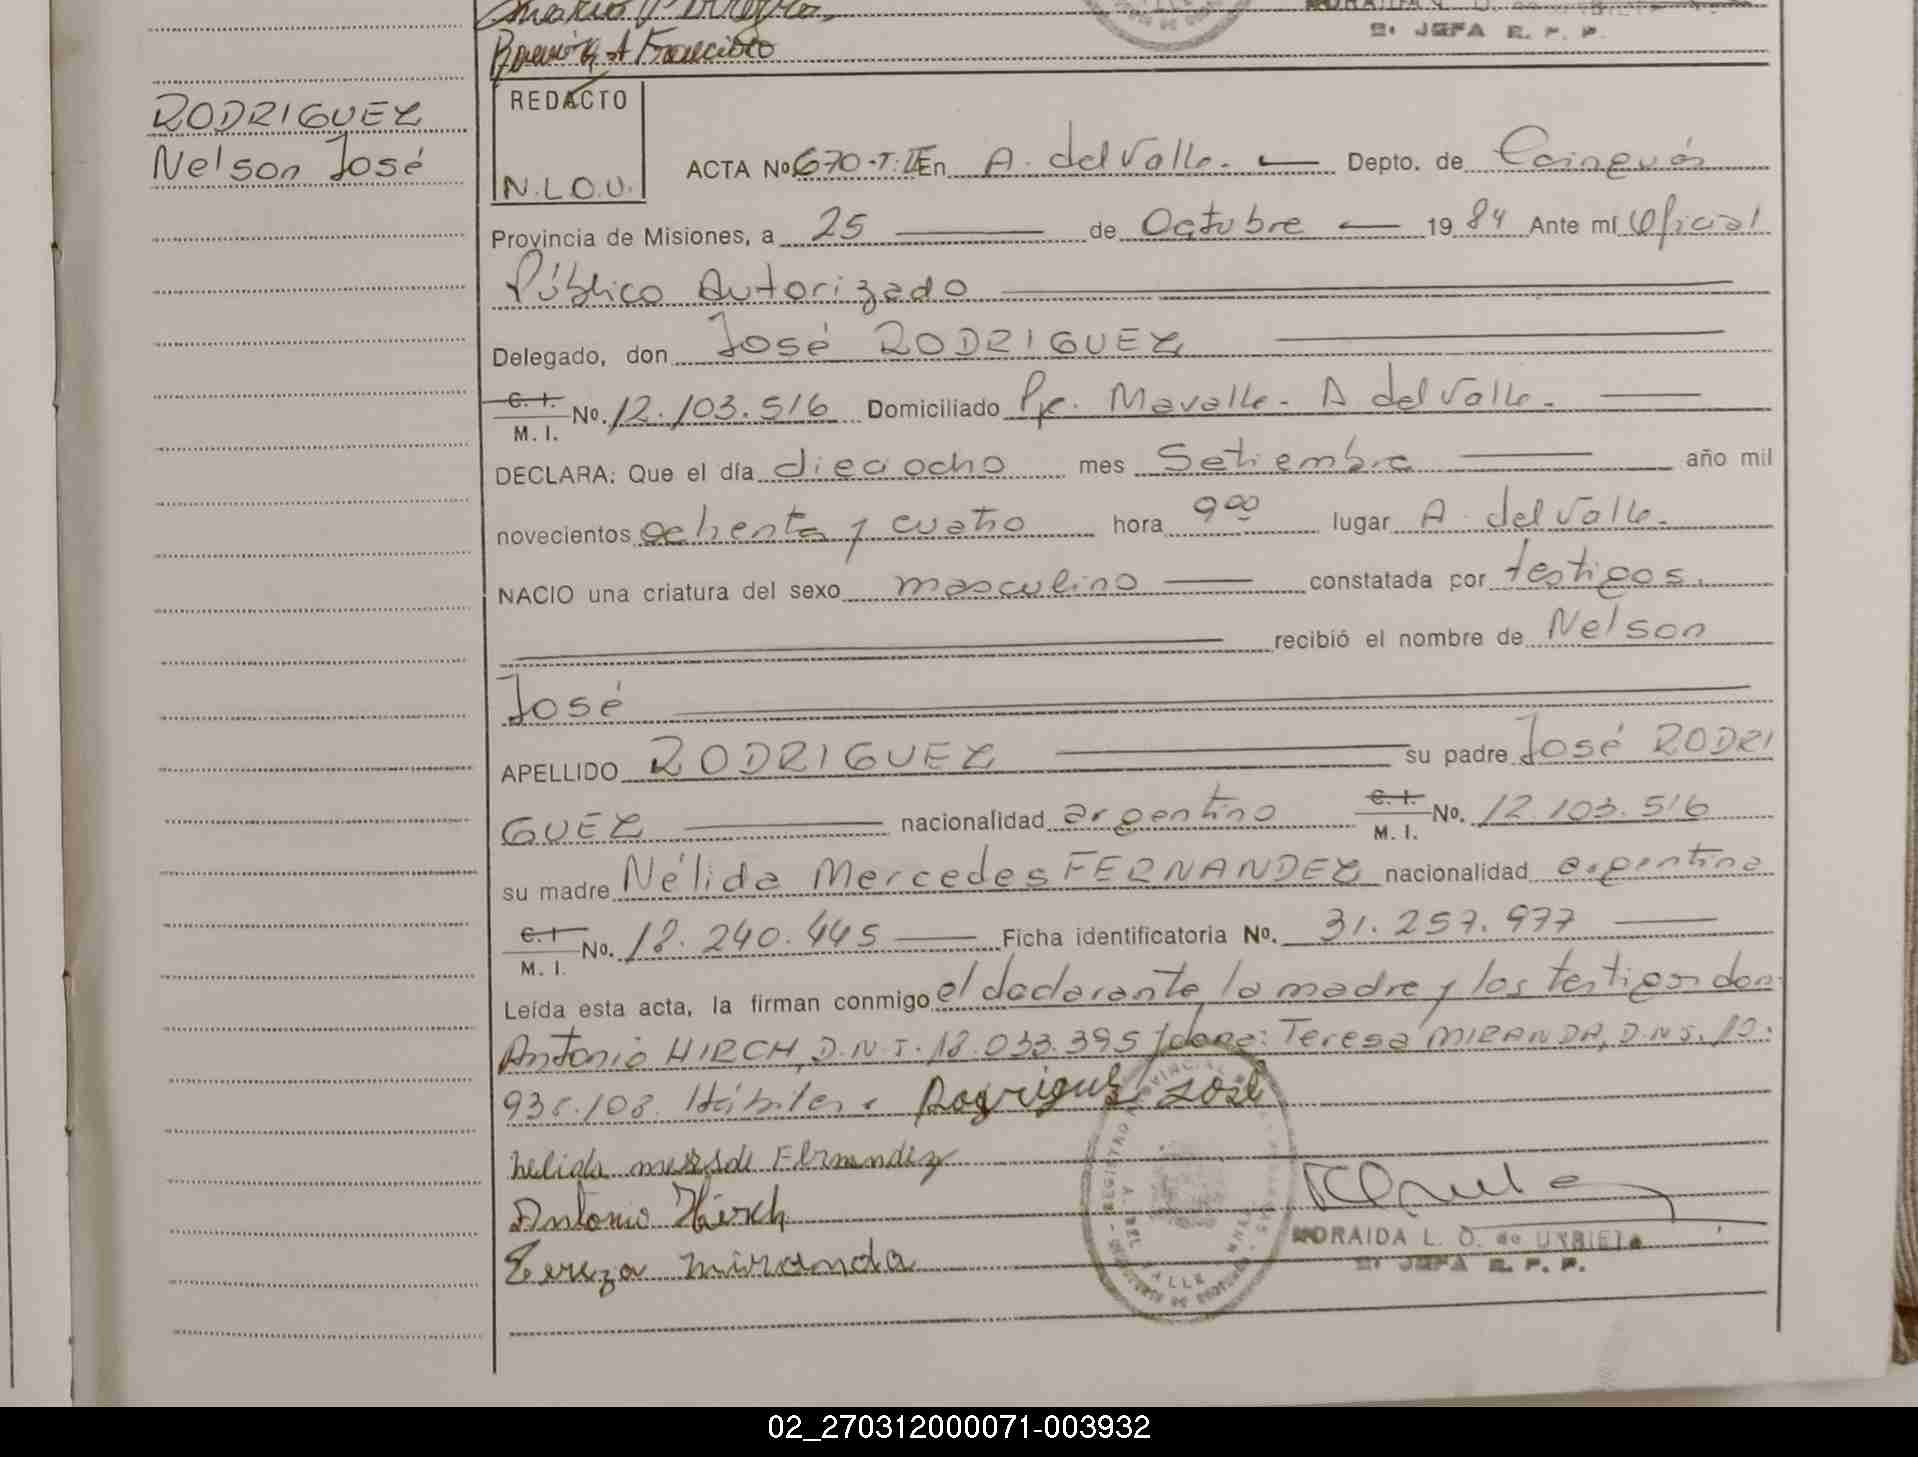 Ramón A Francisco
2º JEFA R. P. P.
RODRIGUEZ
Nelson José
REDACTO
N.L.O.U.
ACTA Nº 670-T.II En A. del Valle. Depto. de Cainguás
Provincia de Misiones, a 25 de Octubre 1984 Ante mí Oficial
Público Autorizado
Delegado, don José RODRIGUEZ
C. I.
M. I. No. 12.103.516 Domiciliado Pje. Mavalle. A del Valle.
DECLARA: Que el día dieciocho mes Setiembre año mil
novecientos ochenta y cuatro hora 9 00 lugar A. del Valle.
NACIO una criatura del sexo masculino constatada por testigos.
recibió el nombre de Nelson
José
APELLIDO RODRIGUEZ su padre José RODRI
GUEZ nacionalidad argentino C. I.
M. I. No. 12.103.516
su madre Nélida Mercedes FERNANDEZ nacionalidad argentina
C. I
M. I. No. 18.240.445 Ficha identificatoria No. 31.257.977
Leída esta acta, la firman conmigo el declarante, la madre y los testigos don
Antonio HIRCH, D.N.I. 18.033.395 y doña: Teresa MIRANDA, D.N.I.
108. Hábiles. Rodriguez José
nelida Fernandez
Antonio Hirch
Tereza miranda
MORAIDA L. O. de URBIETA
2º JEFA R. P. P.
02_270312000071-003932